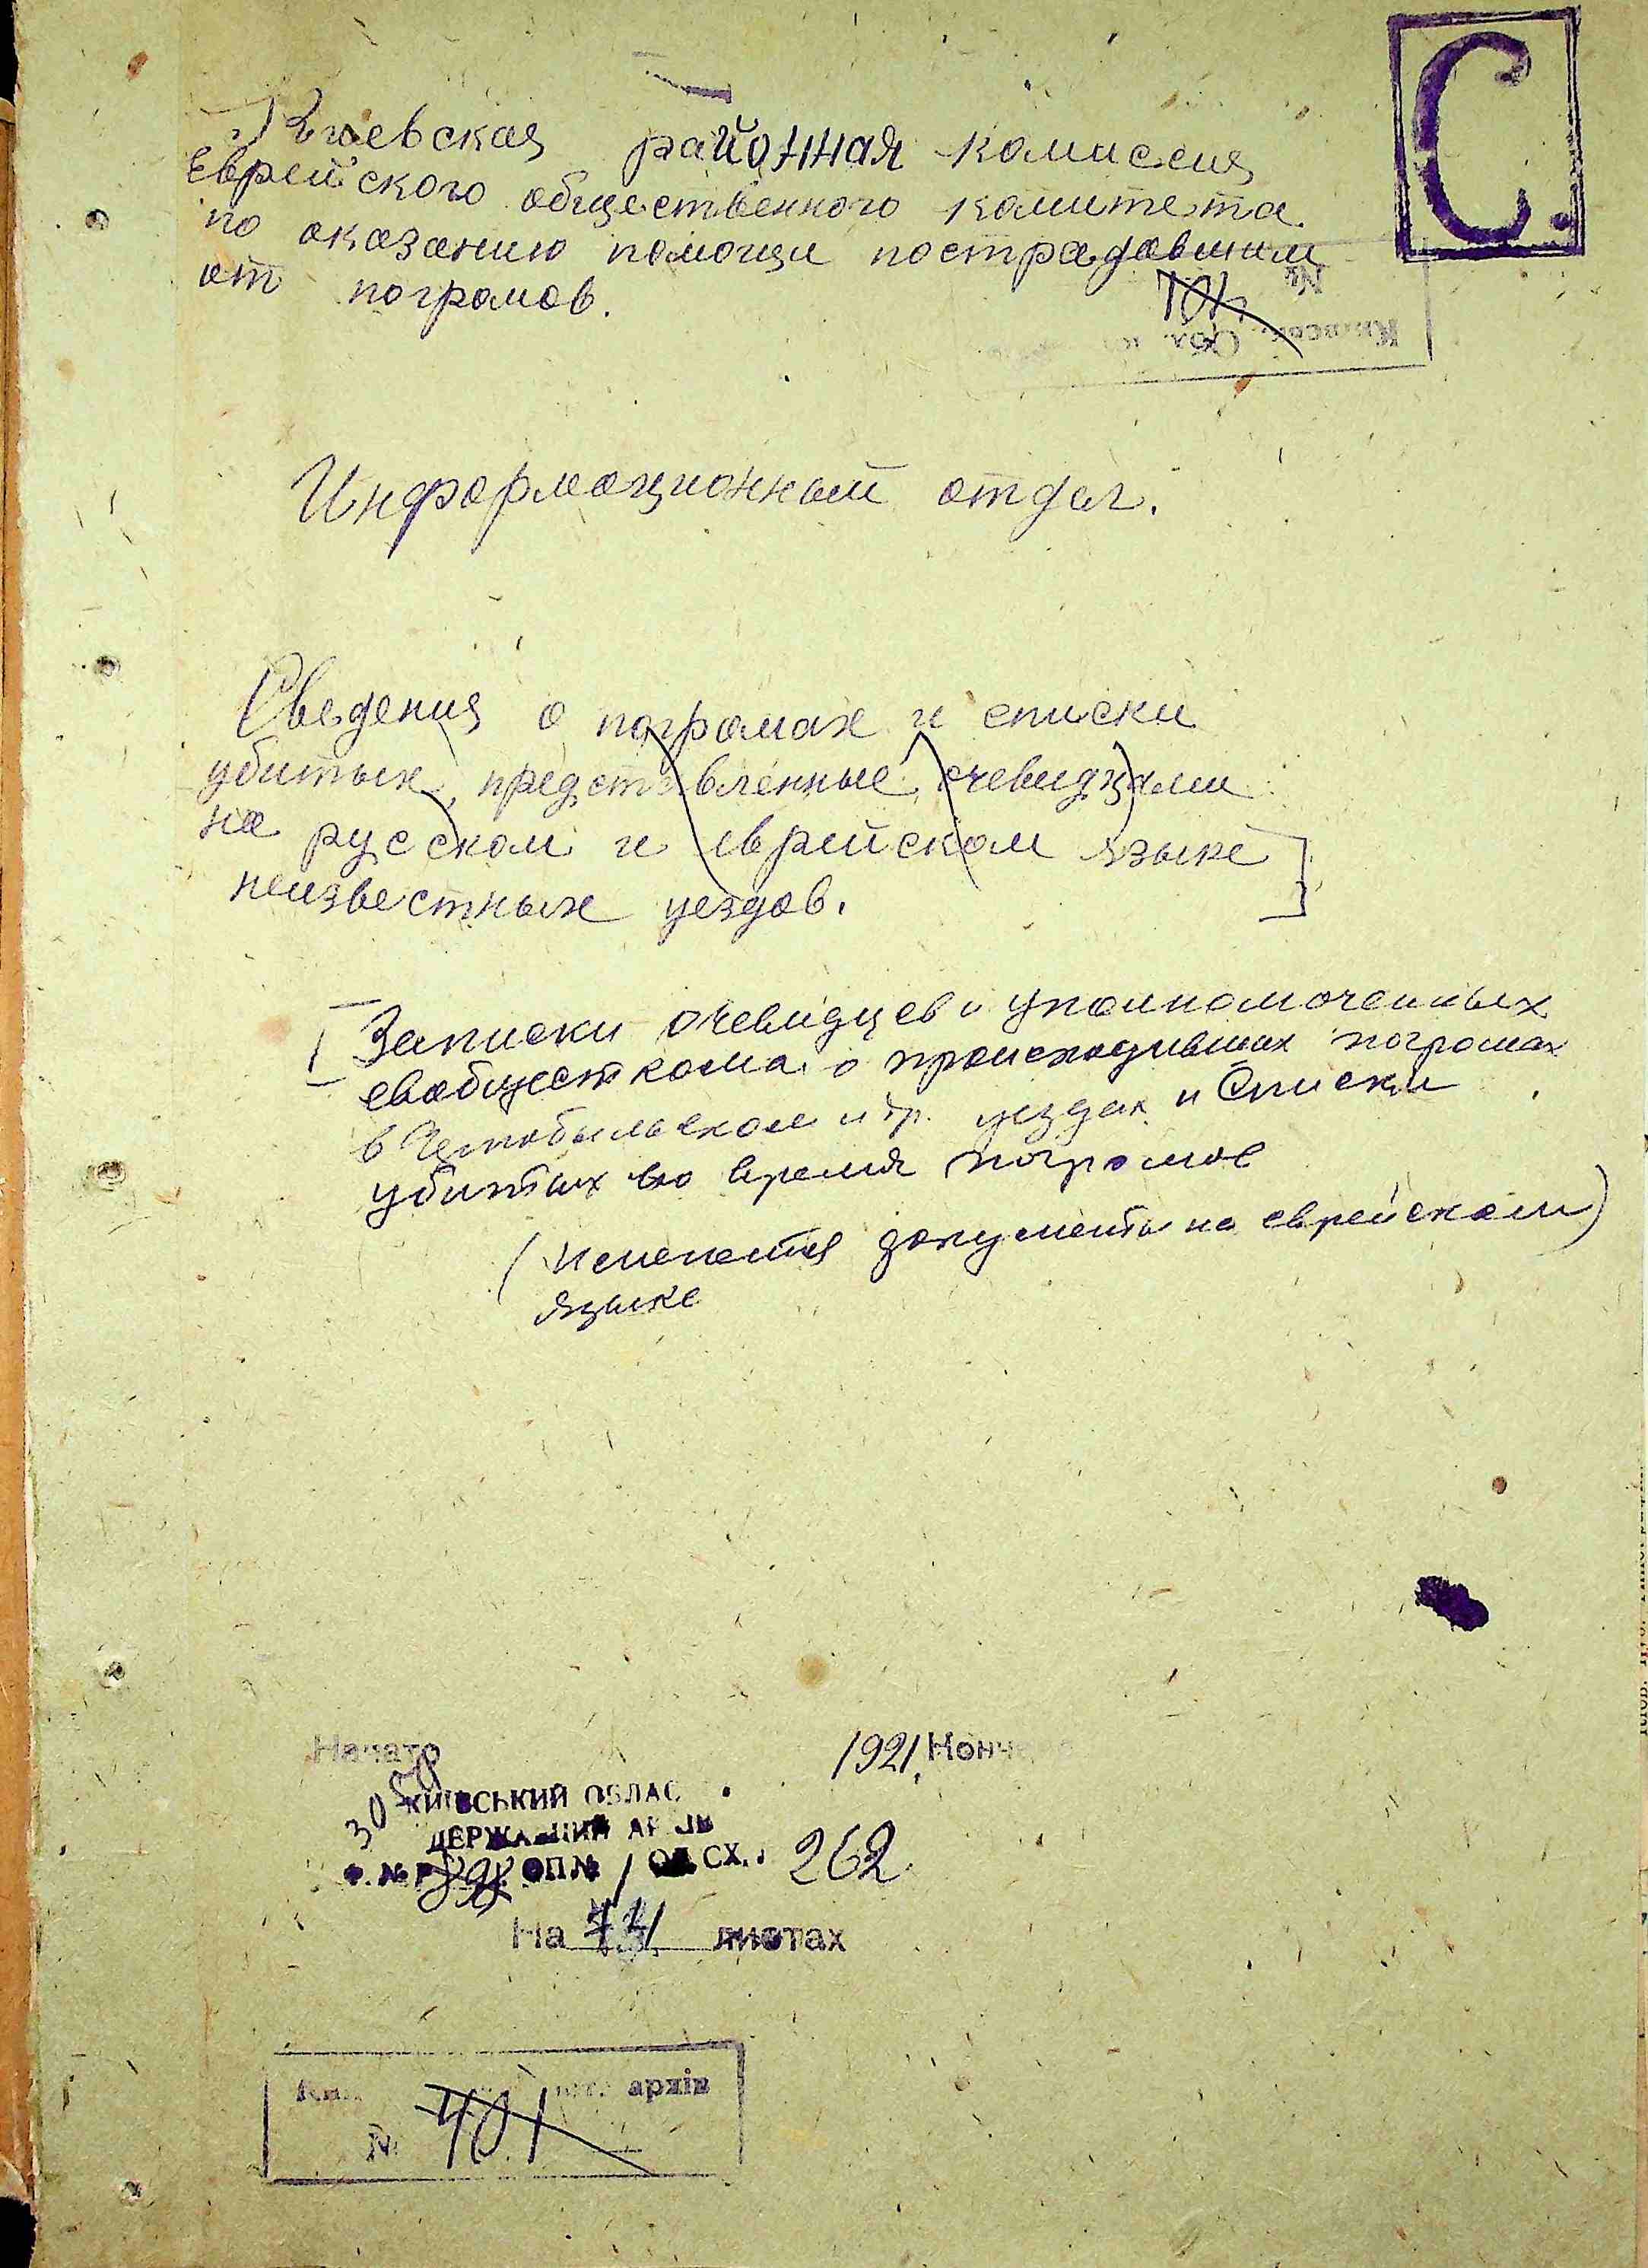 С.
Киевская районная комиссия
Еврейского общественного комитета
по оказанию помощи пострадавшим
от погромов.
Информационный отдел.
Сведения о погромах и списки
убитых, представленные очевидцами
на русском и еврейском языке
неизвестных уездов.
Записки очевидцев и уполномоченных
евобщесткома о происходивших погромах
в Чернобыльском и др. уездах и Списки
убитых во время погромов
(имеются документы на еврейском)
языке
Начато 1921,
КИЇВСЬКИЙ ОБЛАС
ДЕРЖАВНИЙ АРХІВ
Ф. № Р ОП № 1 СХ. 262
На листах
архів
№ 401